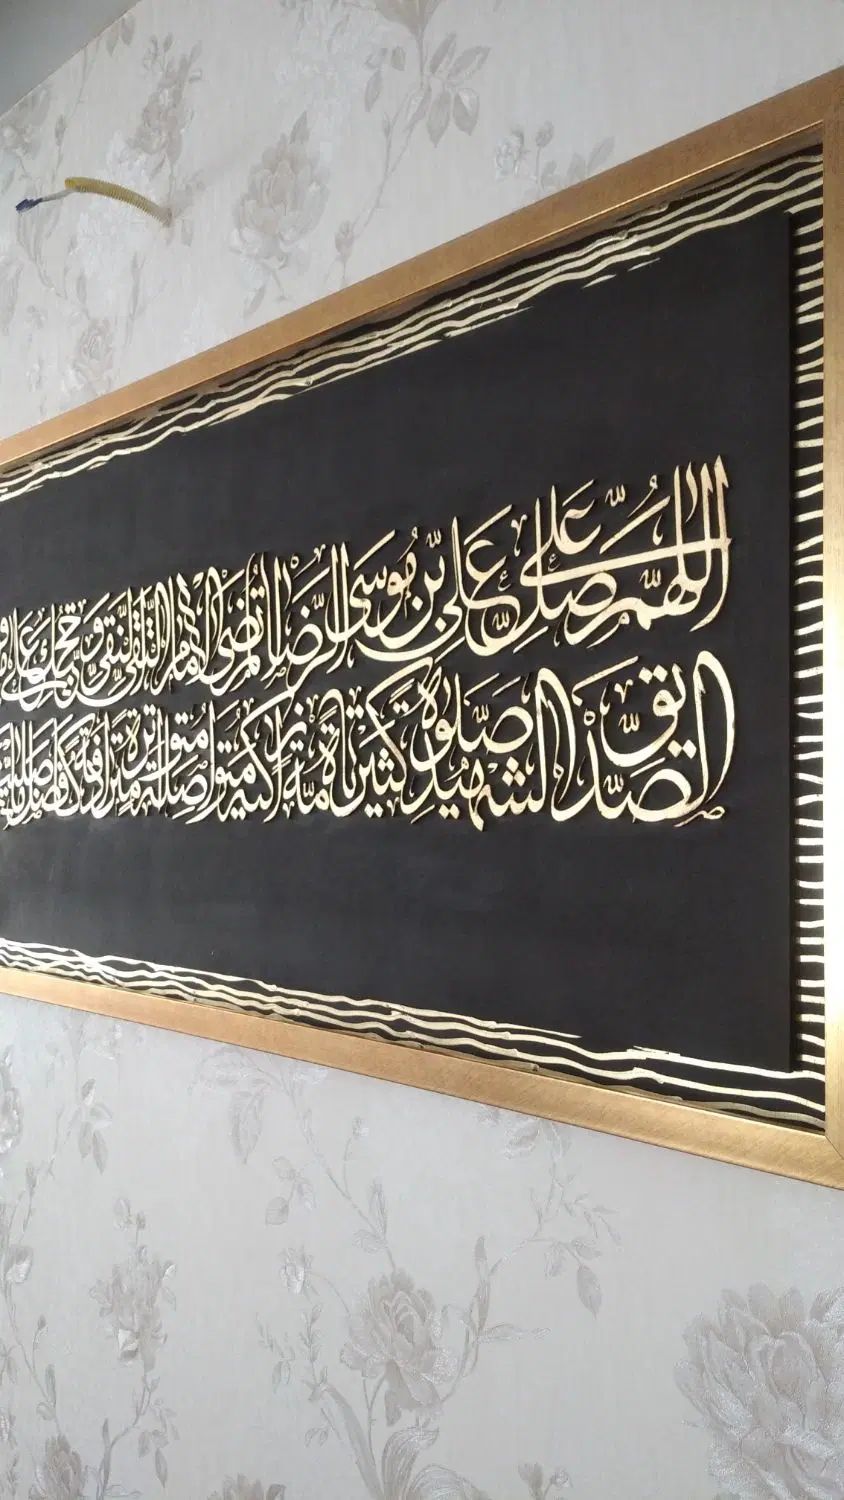 اللّهُمَّ صَلِّ عَلى عَلِيِّ بْنِ مُوسَى الرِّضَا الْمُرْتَضَى الْإِمَامِ التَّقِيِّ النَّقِيِّ وَحُجَّتِكَ عَلى
الصِّدِّيقِ الشَّهِيدِ صَلَاةً كَثِيرَةً تَامَّةً زَاكِيَةً مُتَوَاصِلَةً مُتَوَاتِرَةً مُتَرَادِفَةً كَأَفْضَلِ مَا